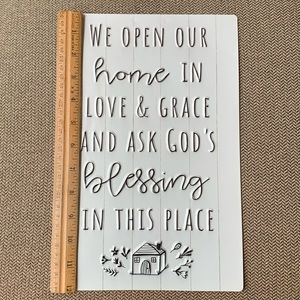 We open our
home in
love & grace
and ask God's
blessing
in this place